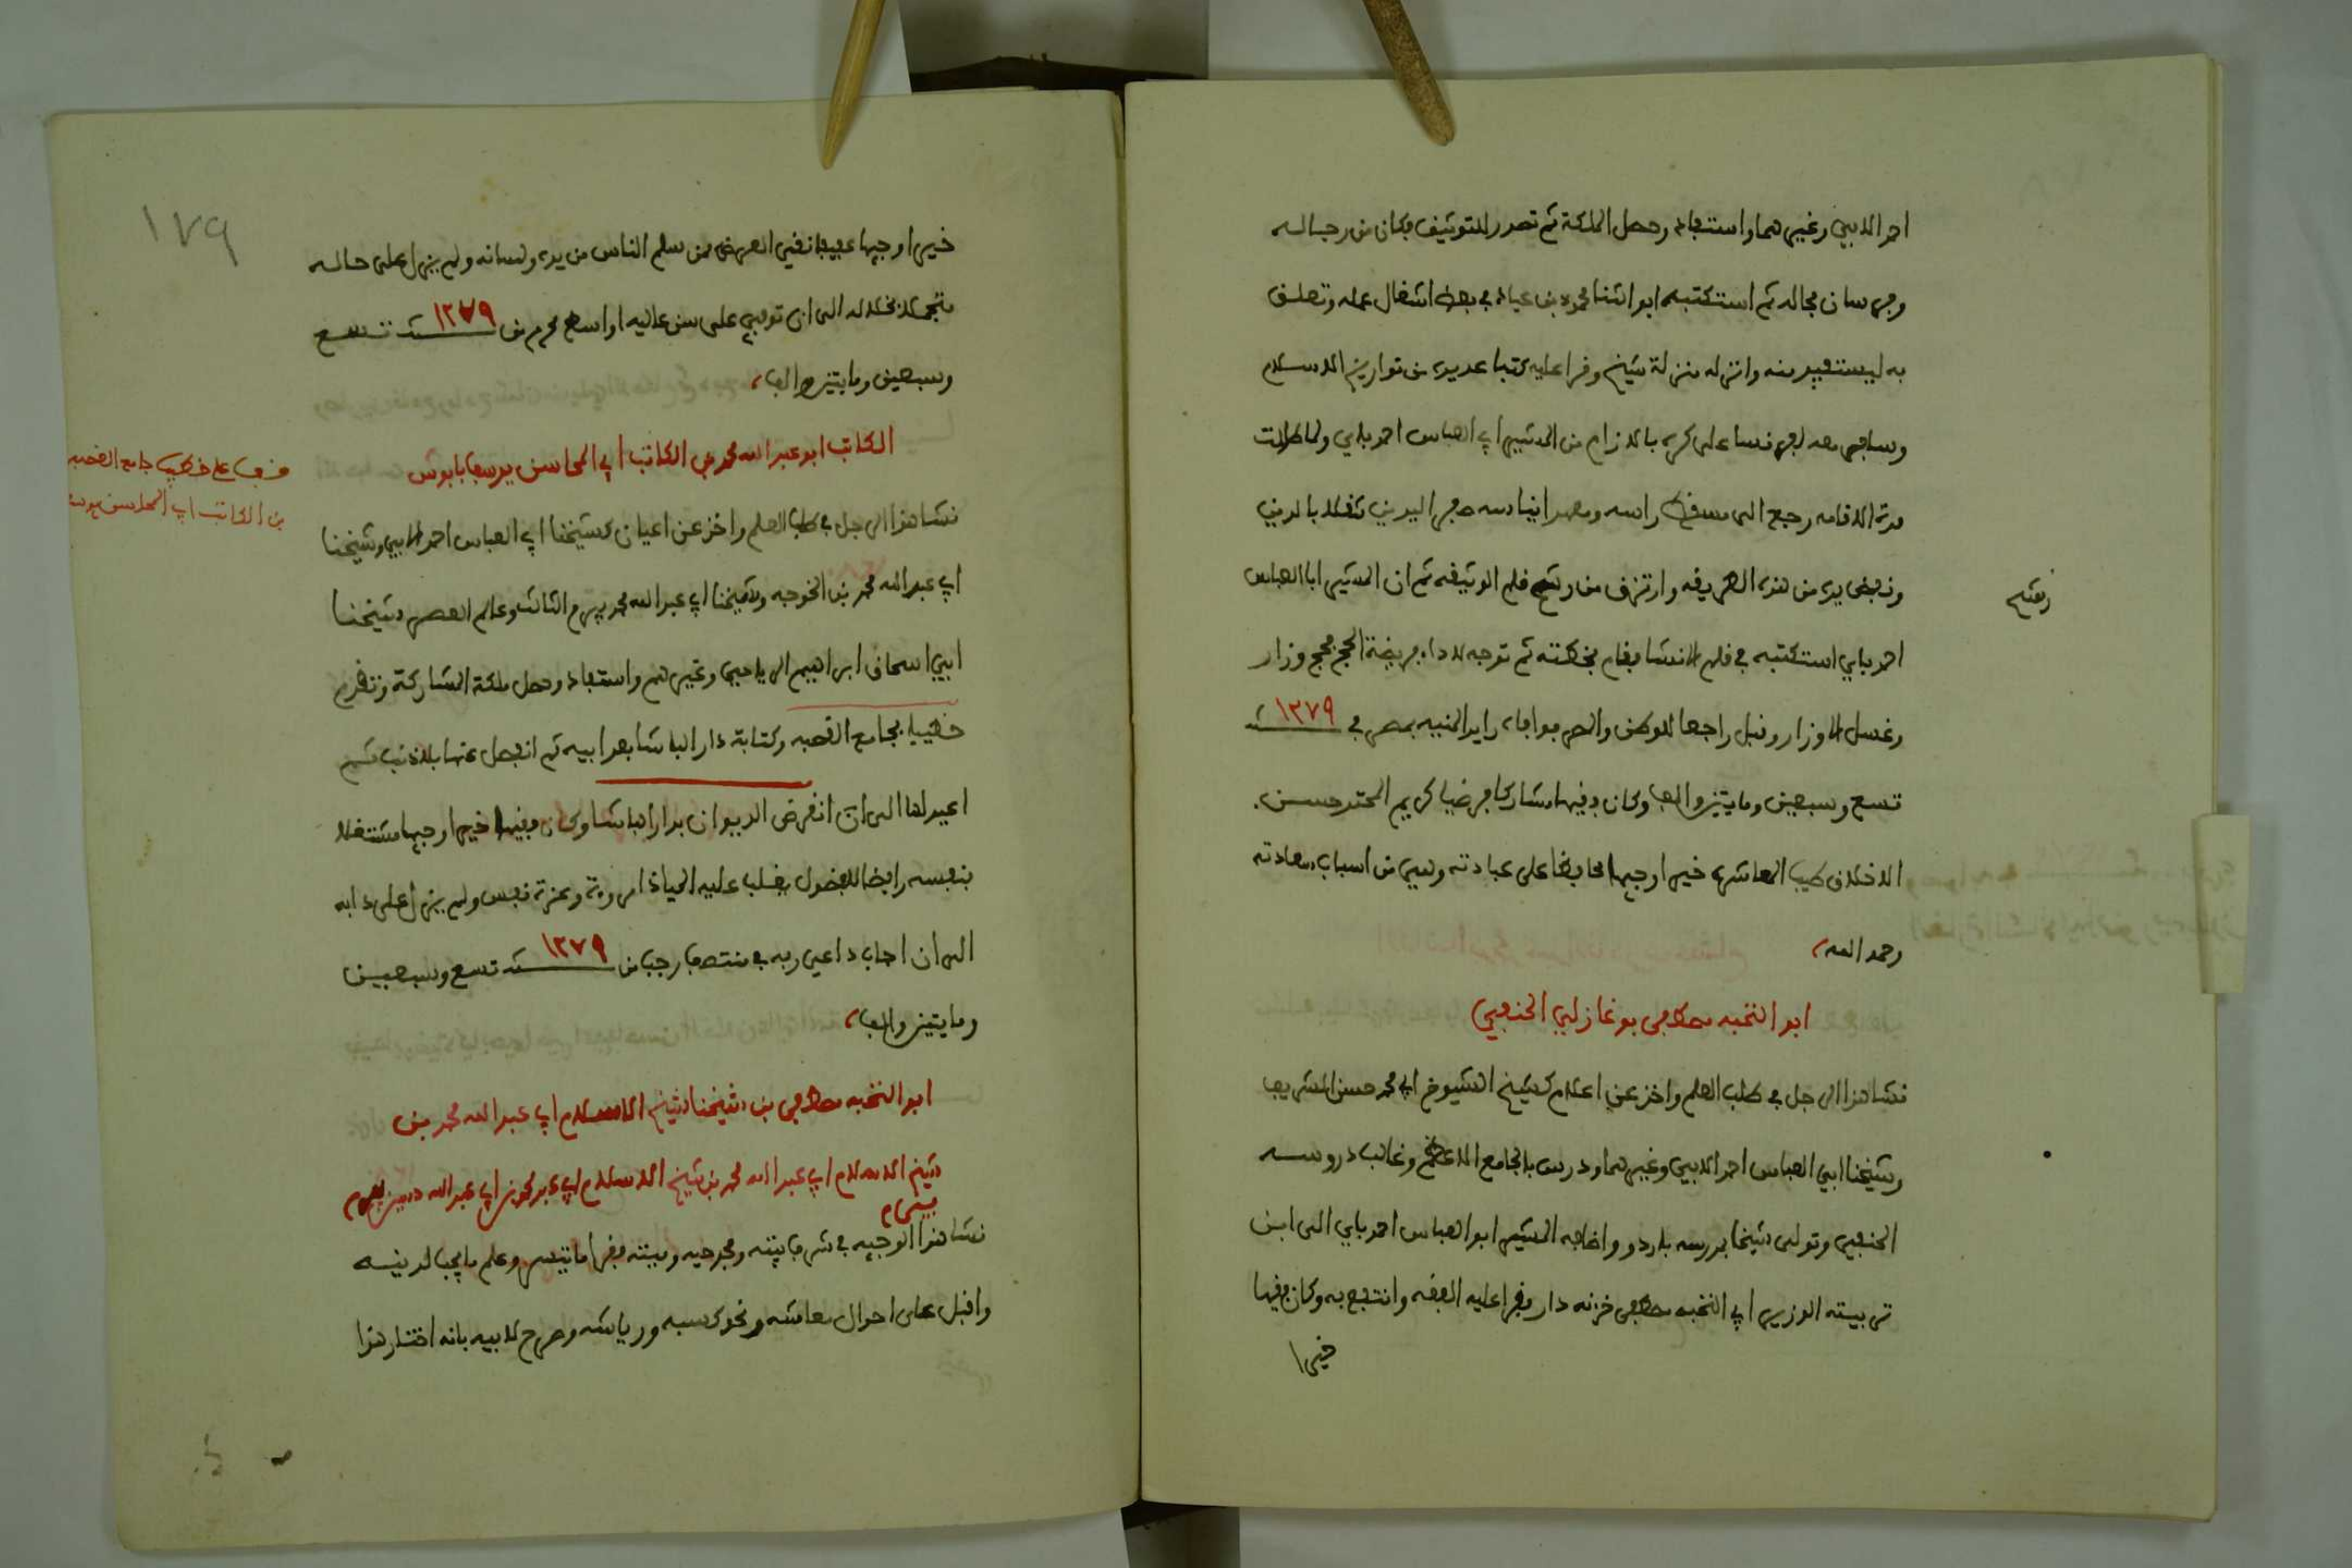 احمد الابي وغيرهما واستفاد وحصل الملكة ثم تصدر للتوثيق فكان من رجاله
وفرسان مجاله ثم استكتبه ابو الثنا محمود بن عياد في بعض اشغال عمله وتعلق
به ليستفيد منه وانزله منزلة شيخ وقرا عليه كتبا عديدة من تواريخ الاسلام
وسافر معه لفرنسا على كره بالزام من المشير ابي العباس احمد باي ولما طالت
مدة الاقامه رجع الى مسقط راسه ومهد ايناسه صفر اليدين مثقلا بالدين
ونفض يده من هذه الطريقه وارتزق من رشح قلم الوثيقه ثم ان المشير ابا العباس
احمد باي استكتبه في قلم الانشا فقام بخطته ثم توجه لاداء فريضة الحج فحج وزار
وغسل الاوزار وقفل راجعا للوطن والدهر فوافاه رايد المنيه بمصر في سنة ١٢٧٩
تسع وسبعين ومايتين والف وكان فقيها مشاركا مرضيا كريم المحتد حسن
الاخلاق طيب المعاشرة خيرا وجيها محافظا على عبادته وهي من اسباب سعادته
رحمه الله
ابو النخبه مصطفى بوغازلي الحنفي
نشا هذا الرجل في طلب العلم واخذ عن اعلام كشيخ الشيوخ ابي محمد حسن الشريف
وشيخنا ابي العباس احمد الابي وغيرهما ودرس بالجامع الاعظم وغالب دروسه
الحنفي وتولى شيخا بمدرسه باردو واضافه المشير ابو العباس احمد باي الى ابن
تربيته الوزير ابي النخبه مصطفى خزنه دار فقرا عليه الفقه وانتفع به وكان فقيها
خيرا
١٧٩
خيرا وجيها عفيفا نقي العرض ممن سلم الناس من يده ولسانه ولم يزل على حاله
متجملا بخلاله الى ان توفي على سن عاليه اواسط محرم من سنة ١٢٧٩ تسع
وسبعين ومايتين والف
الكاتب ابو عبد الله محمد بن الكاتب ابي المحاسن يوسف بابوش
قف على خطيب جامع القصبه
بن الكاتب ابي المحاسن يوسف
نشا هذا الرجل في طلب العلم واخذ عن اعيان كشيخنا ابي العباس احمد الابي وشيخنا
ابي عبد الله محمد بن الخوجه وشيخنا ابي عبد الله محمد بيرم الثالث وعالم العصر شيخنا
ابي اسحاق ابراهيم الرياحي وغيرهم واستفاد وحصل ملكة المشاركة وتقدم
خطيبا بجامع القصبه وكتابة دار الباشا بعد ابيه ثم انفصل عنها بلا ذنب ثم
اعيد لها الى ان انقرض الديوان بدار الباشا وكان فقيها خيرا وجيها مشتغلا
بنفسه رافضا للفضول يغلب عليه الحيا ذا مروءة وعزة نفس ولم يزل على دابه
الى ان اجاب داعي ربه في منتصف رجب من سنة ١٢٧٩ تسع وسبعين
ومايتين والف
ابو النخبه مصطفى بن شيخنا شيخ الاسلام ابي عبد الله محمد بن
شيخ الاسلام ابي عبد الله محمد بن شيخ الاسلام ابي عبد الله حسين بيرم
بيرم
نشا هذا الوجيه في شرف بيته ومجد حيه وميته فقرا ما تيسر وعلم ما يجب لدينه
واقبل على احوال معاشه ونحو كسبه ورياشه وصرح لابيه بانه اختار هذا